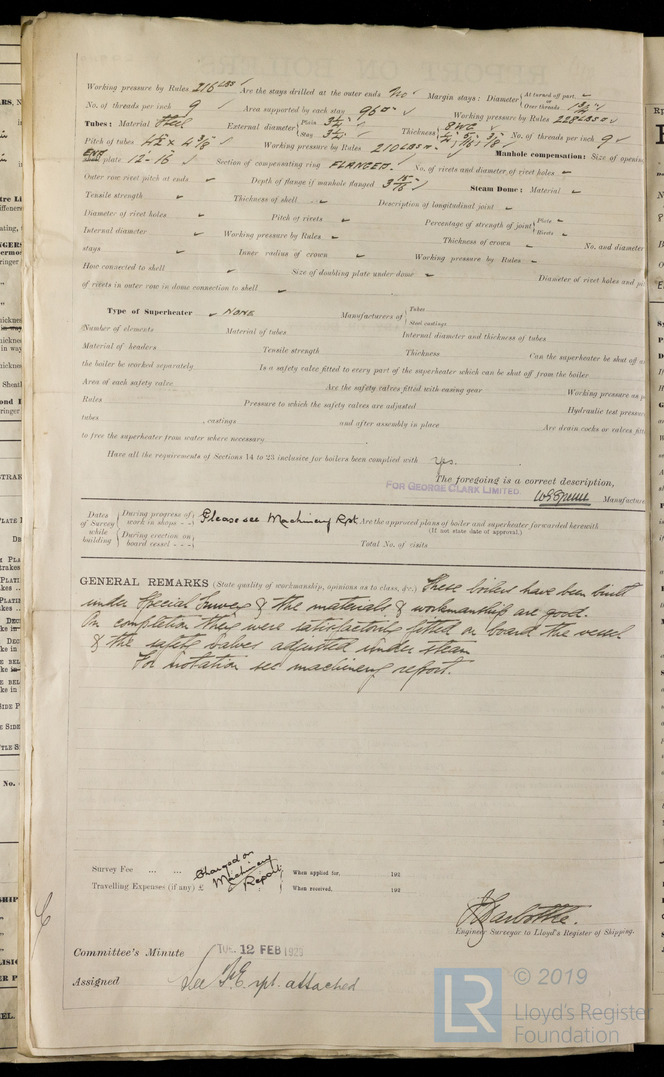 Working pressure by Rules 216 LBS ✓ Are the stays drilled at the outer ends No Margin stays: Diameter { At turned off part, or Over threads 1 3/4" ✓
No. of threads per inch 9 ✓ Area supported by each stay 96 □" ✓ Working pressure by Rules 228 LBS □" ✓
Tubes: Material Steel External diameter { Plain 3 1/4" Stay 3 1/4" ✓ Thickness { 8 WG ✓ 1/4", 5/16", 3/8" No. of threads per inch 9 ✓
Pitch of tubes 4 1/2 × 4 3/8 ✓ Working pressure by Rules 210 LBS □" ✓ Manhole compensation: Size of opening
END shell plate 12-16 ✓ Section of compensating ring FLANGED. ✓ No. of rivets and diameter of rivet holes
Outer row rivet pitch at ends Depth of flange if manhole flanged 3 15/16" ✓ Steam Dome: Material
Tensile strength Thickness of shell Description of longitudinal joint
Diameter of rivet holes Pitch of rivets Percentage of strength of joint { Plate Rivets
Internal diameter Working pressure by Rules Thickness of crown No. and diameter
stays Inner radius of crown Working pressure by Rules
How connected to shell Size of doubling plate under dome Diameter of rivet holes and
of rivets in outer row in dome connection to shell
Type of Superheater NONE Manufacturers of { Tubes Steel castings
Number of elements Material of tubes Internal diameter and thickness of tubes
Material of headers Tensile strength Thickness Can the superheater be shut off
the boiler be worked separately Is a safety valve fitted to every part of the superheater which can be shut off from the boiler
Area of each safety valve Are the safety valves fitted with easing gear Working pressure as
Rules Pressure to which the safety valves are adjusted Hydraulic test pressure
tubes , castings and after assembly in place Are drain cocks or valves
to free the superheater from water where necessary
Have all the requirements of Sections 14 to 23 inclusive for boilers been complied with Yes.
The foregoing is a correct description,
FOR GEORGE CLARK LIMITED. Manufacture
Dates of Survey while building { During progress of work in shops - - During erection on board vessel - - - } Please see Machinery Rpt. Are the approved plans of boiler and superheater forwarded herewith
(If not state date of approval.)
Total No. of visits
GENERAL REMARKS (State quality of workmanship, opinions as to class, &c.) These boilers have been built
under Special Survey & the materials & workmanship are good.
On completion they were satisfactorily fitted on board the vessel
& the safety valves adjusted under steam
For notation see machinery report.
Survey Fee ... ... Charged on Machinery Report When applied for, 192
Travelling Expenses (if any) £ : : When received, 192
Engineer Surveyor to Lloyd's Register of Shipping.
Committee's Minute TUE. 12 FEB 1929
Assigned See F.E. rpt. attached
LR © 2019
Lloyd's Register
Foundation